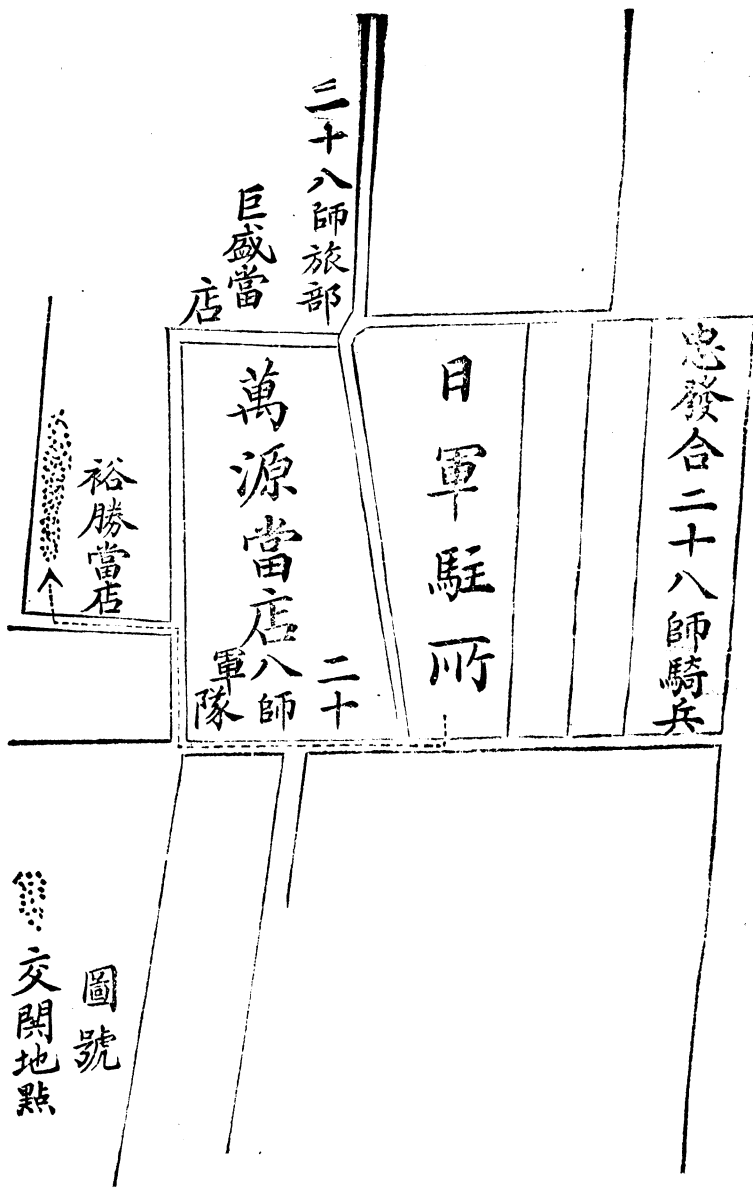 忠發合二十八師騎兵
日軍駐所
二十八師旅部
巨盛當
店
萬源當店
二十
八師
軍隊
裕勝當店
圖號
交閧地點